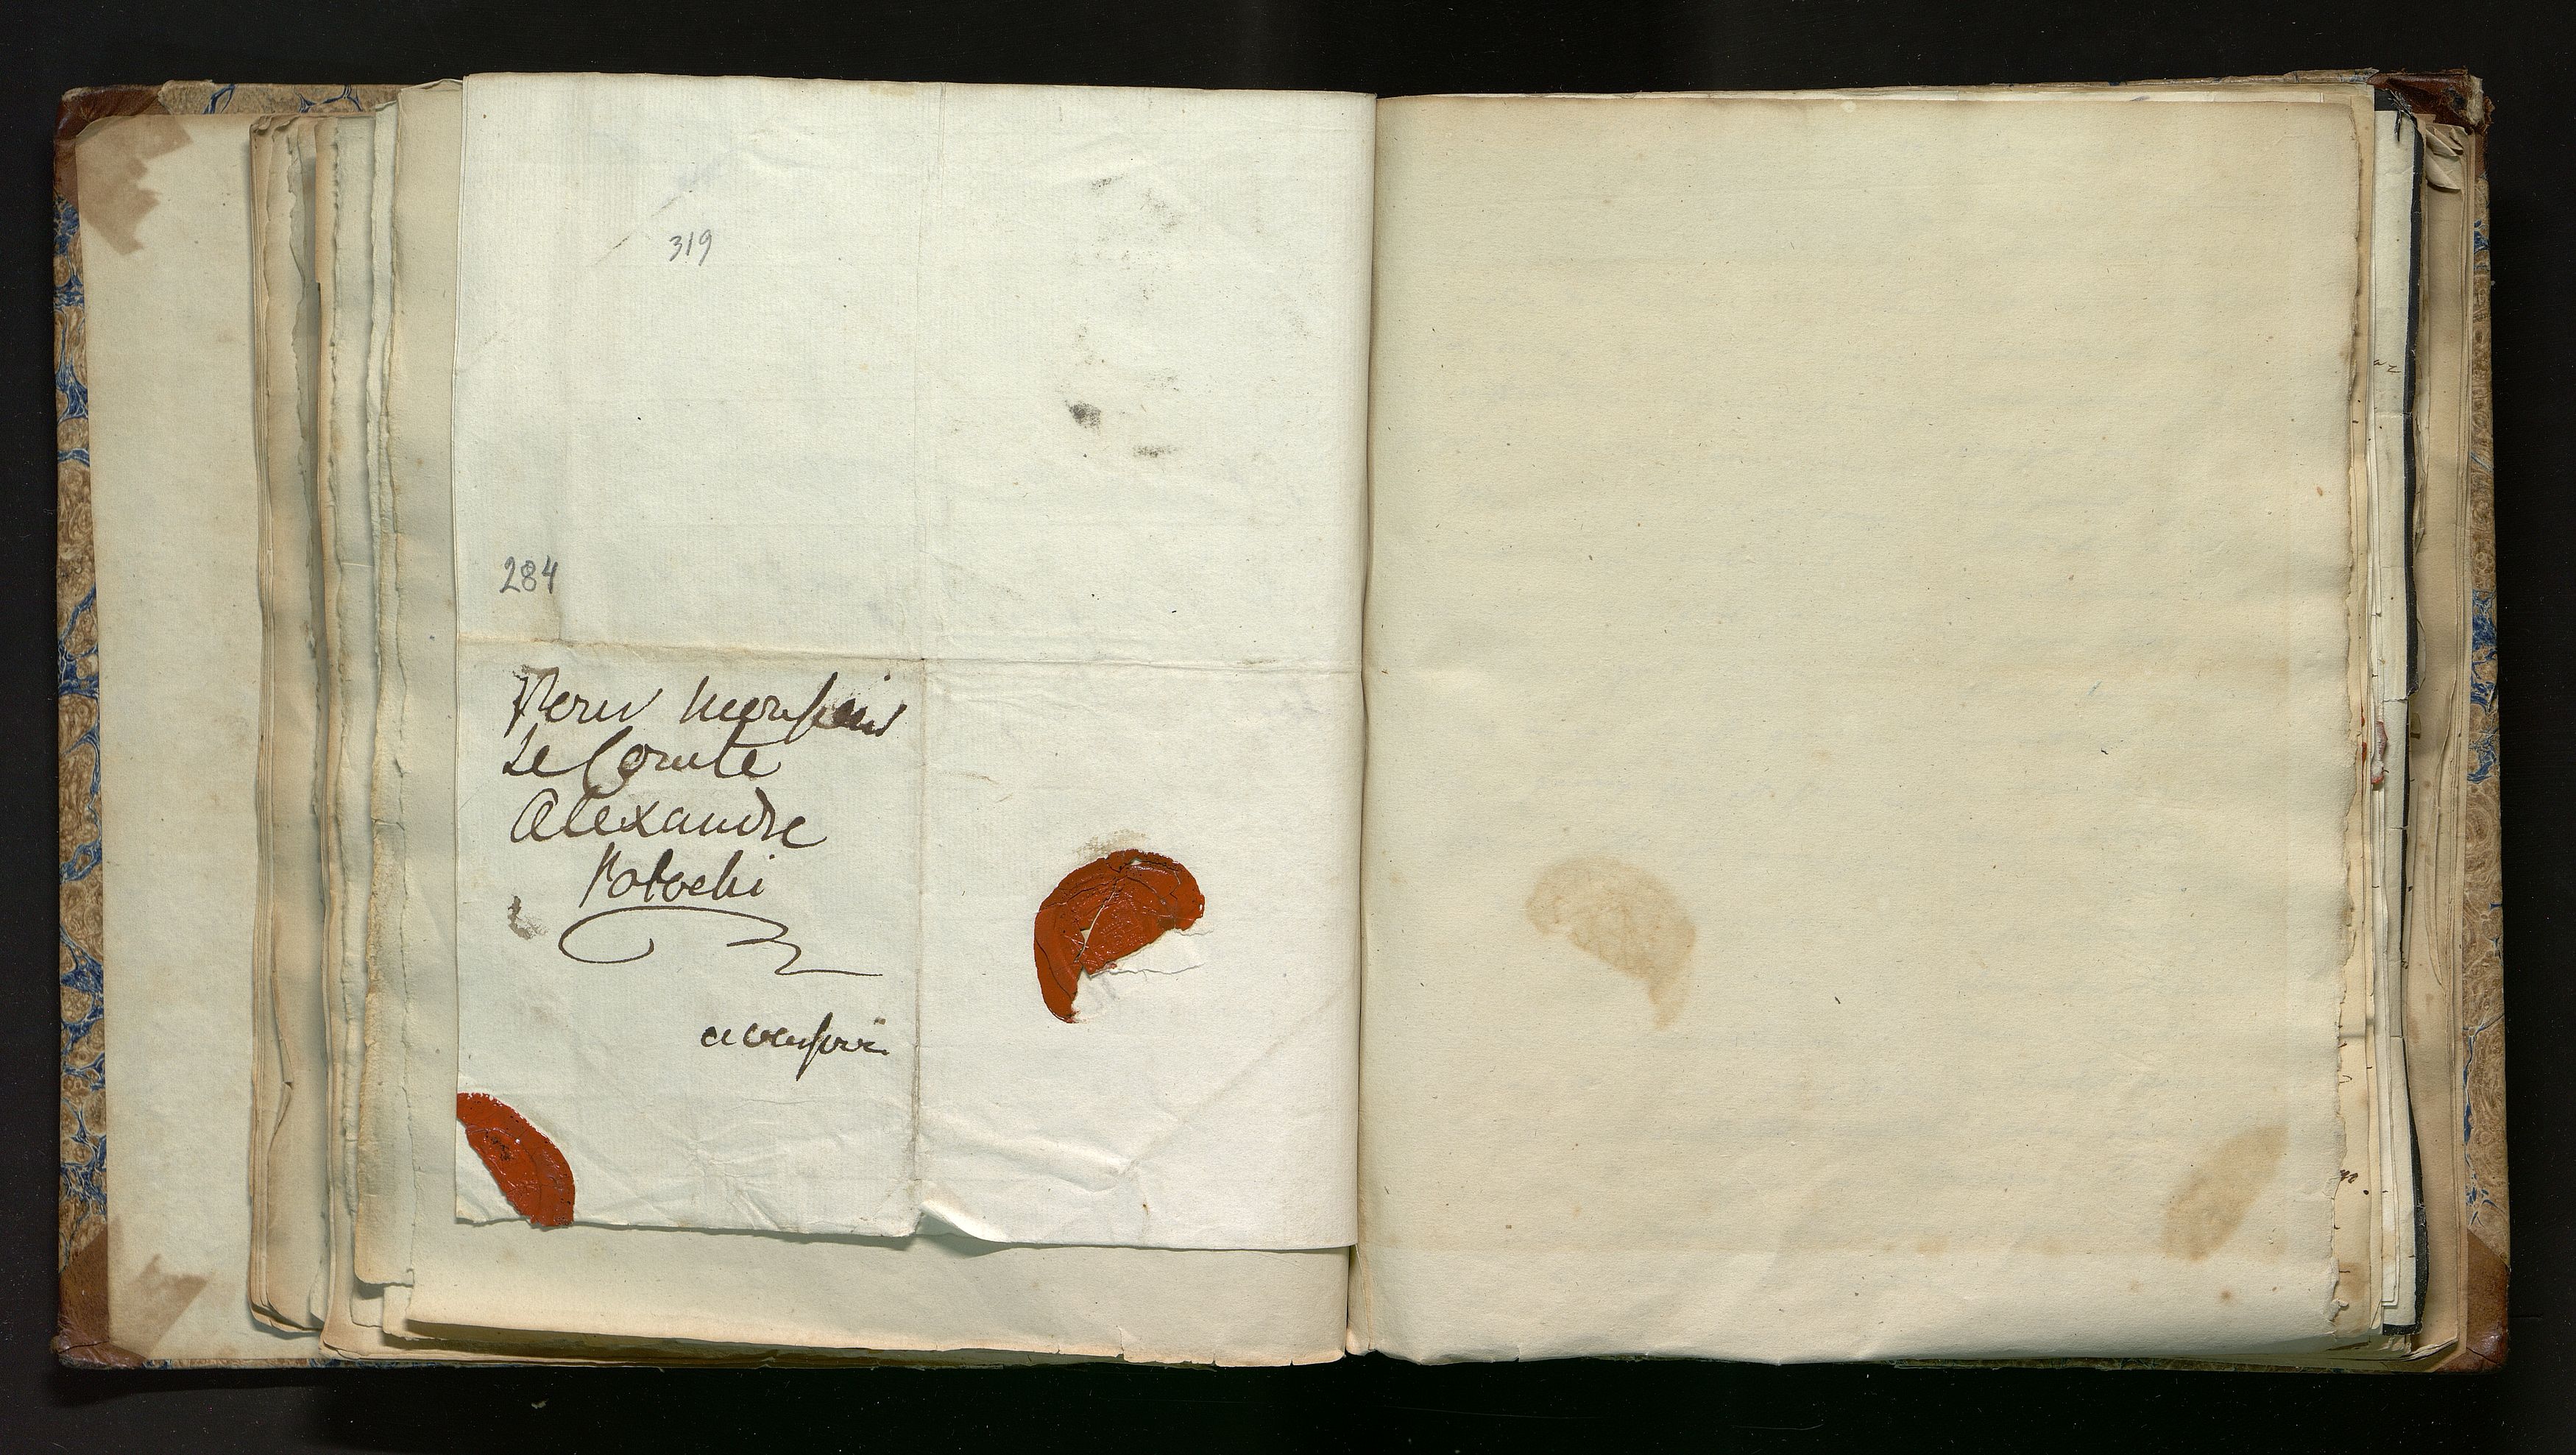 319
284
Pour Monsieur
Le Comte
Alexandre
Potocki
a Varsovie